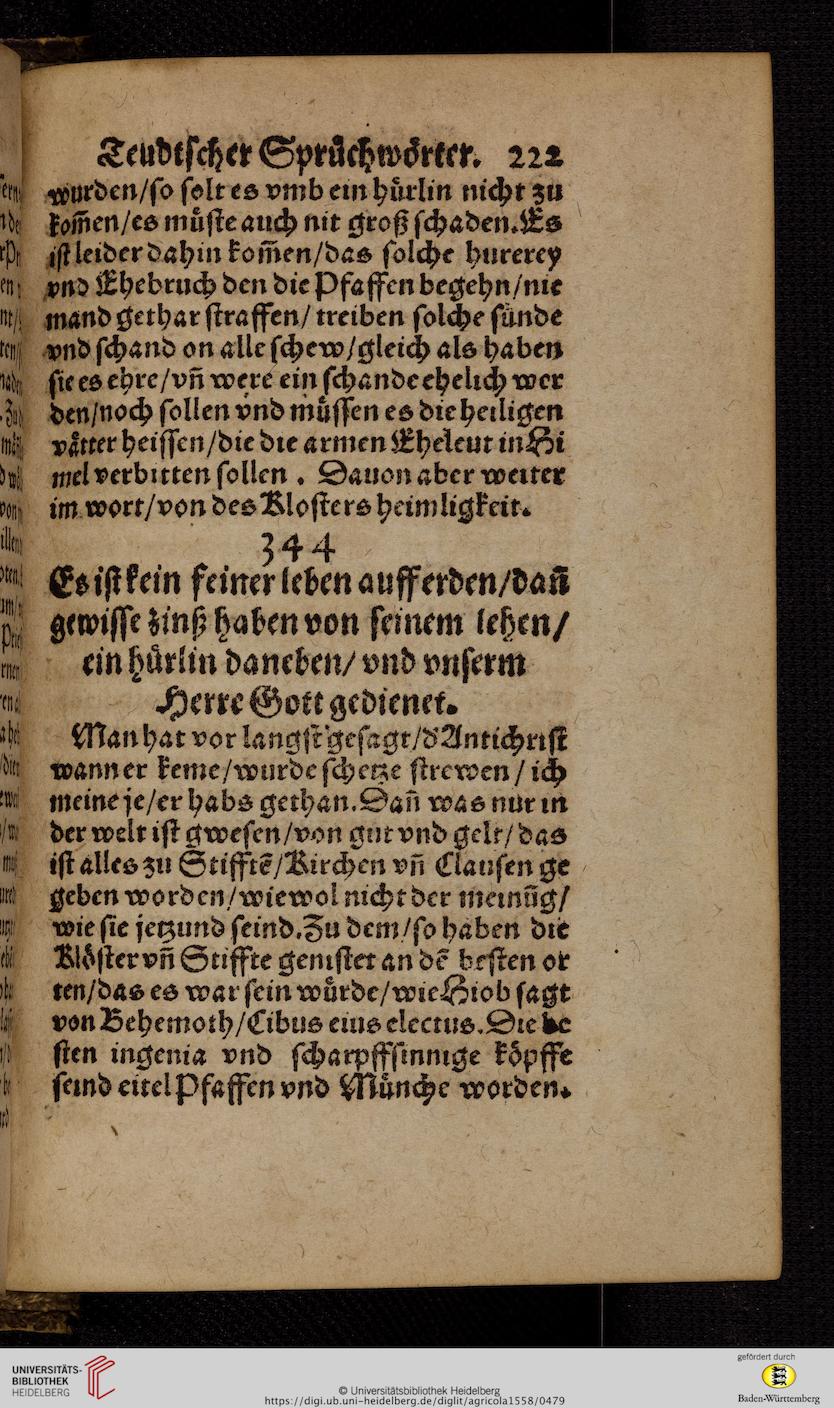 Teudtſcher Spruͤchwoͤrter. 222
wurden/ſo ſolt es vmb ein huͤrlin nicht zu
kom̃en/es muͤſte auch nit groß ſchaden. Es
iſt leider dahin kom̃en/das ſolche hurerey
vnd Ehebruch den die Pfaffen begehn/nie
mand gethar ſtraffen/ treiben ſolche ſuͤnde
vnd ſchand on alle ſchew/gleich als haben
ſie es ehre/vñ were ein ſchande ehelich wer
den/noch ſollen vnd muͤſſen es die heiligen
vaͤtter heiſſen/die die armen Eheleut in Hi
mel verbitten ſollen . Dauon aber weiter
im wort/von des Kloſters heimligkeit.
344
Es iſt kein feiner leben auff erden/dañ
gewiſſe zinß haben von ſeinem lehen/
ein huͤrlin daneben/ vnd vnſerm
Herre Gott gedienet.
Man hat vor langſt geſagt/d' Antichriſt
wann er keme/wurde ſchetze ſtrewen / ich
meine je/er habs gethan. Dañ was nur in
der welt iſt gweſen/von gut vnd gelt/ das
iſt alles zu Stifftẽ/Kirchen vñ Clauſen ge
geben worden/wiewol nicht der meinũg/
wie ſie jetzund ſeind. Zu dem/ſo haben die
Kloͤſter vñ Stiffte geniſtet an dẽ beſten or
ten/das es war ſein wuͤrde/wie Hiob ſagt
von Behemoth/Cibus eius electus. Die be
ſten ingenia vnd ſcharpffſinnige koͤpffe
ſeind eitel Pfaffen vnd Muͤnche worden.
UNIVERSITÄTS-
BIBLIOTHEK
HEIDELBERG
© Universitätsbibliothek Heidelberg
https://digi.ub.uni-heidelberg.de/diglit/agricola1558/0479
gefördert durch
Baden-Württemberg